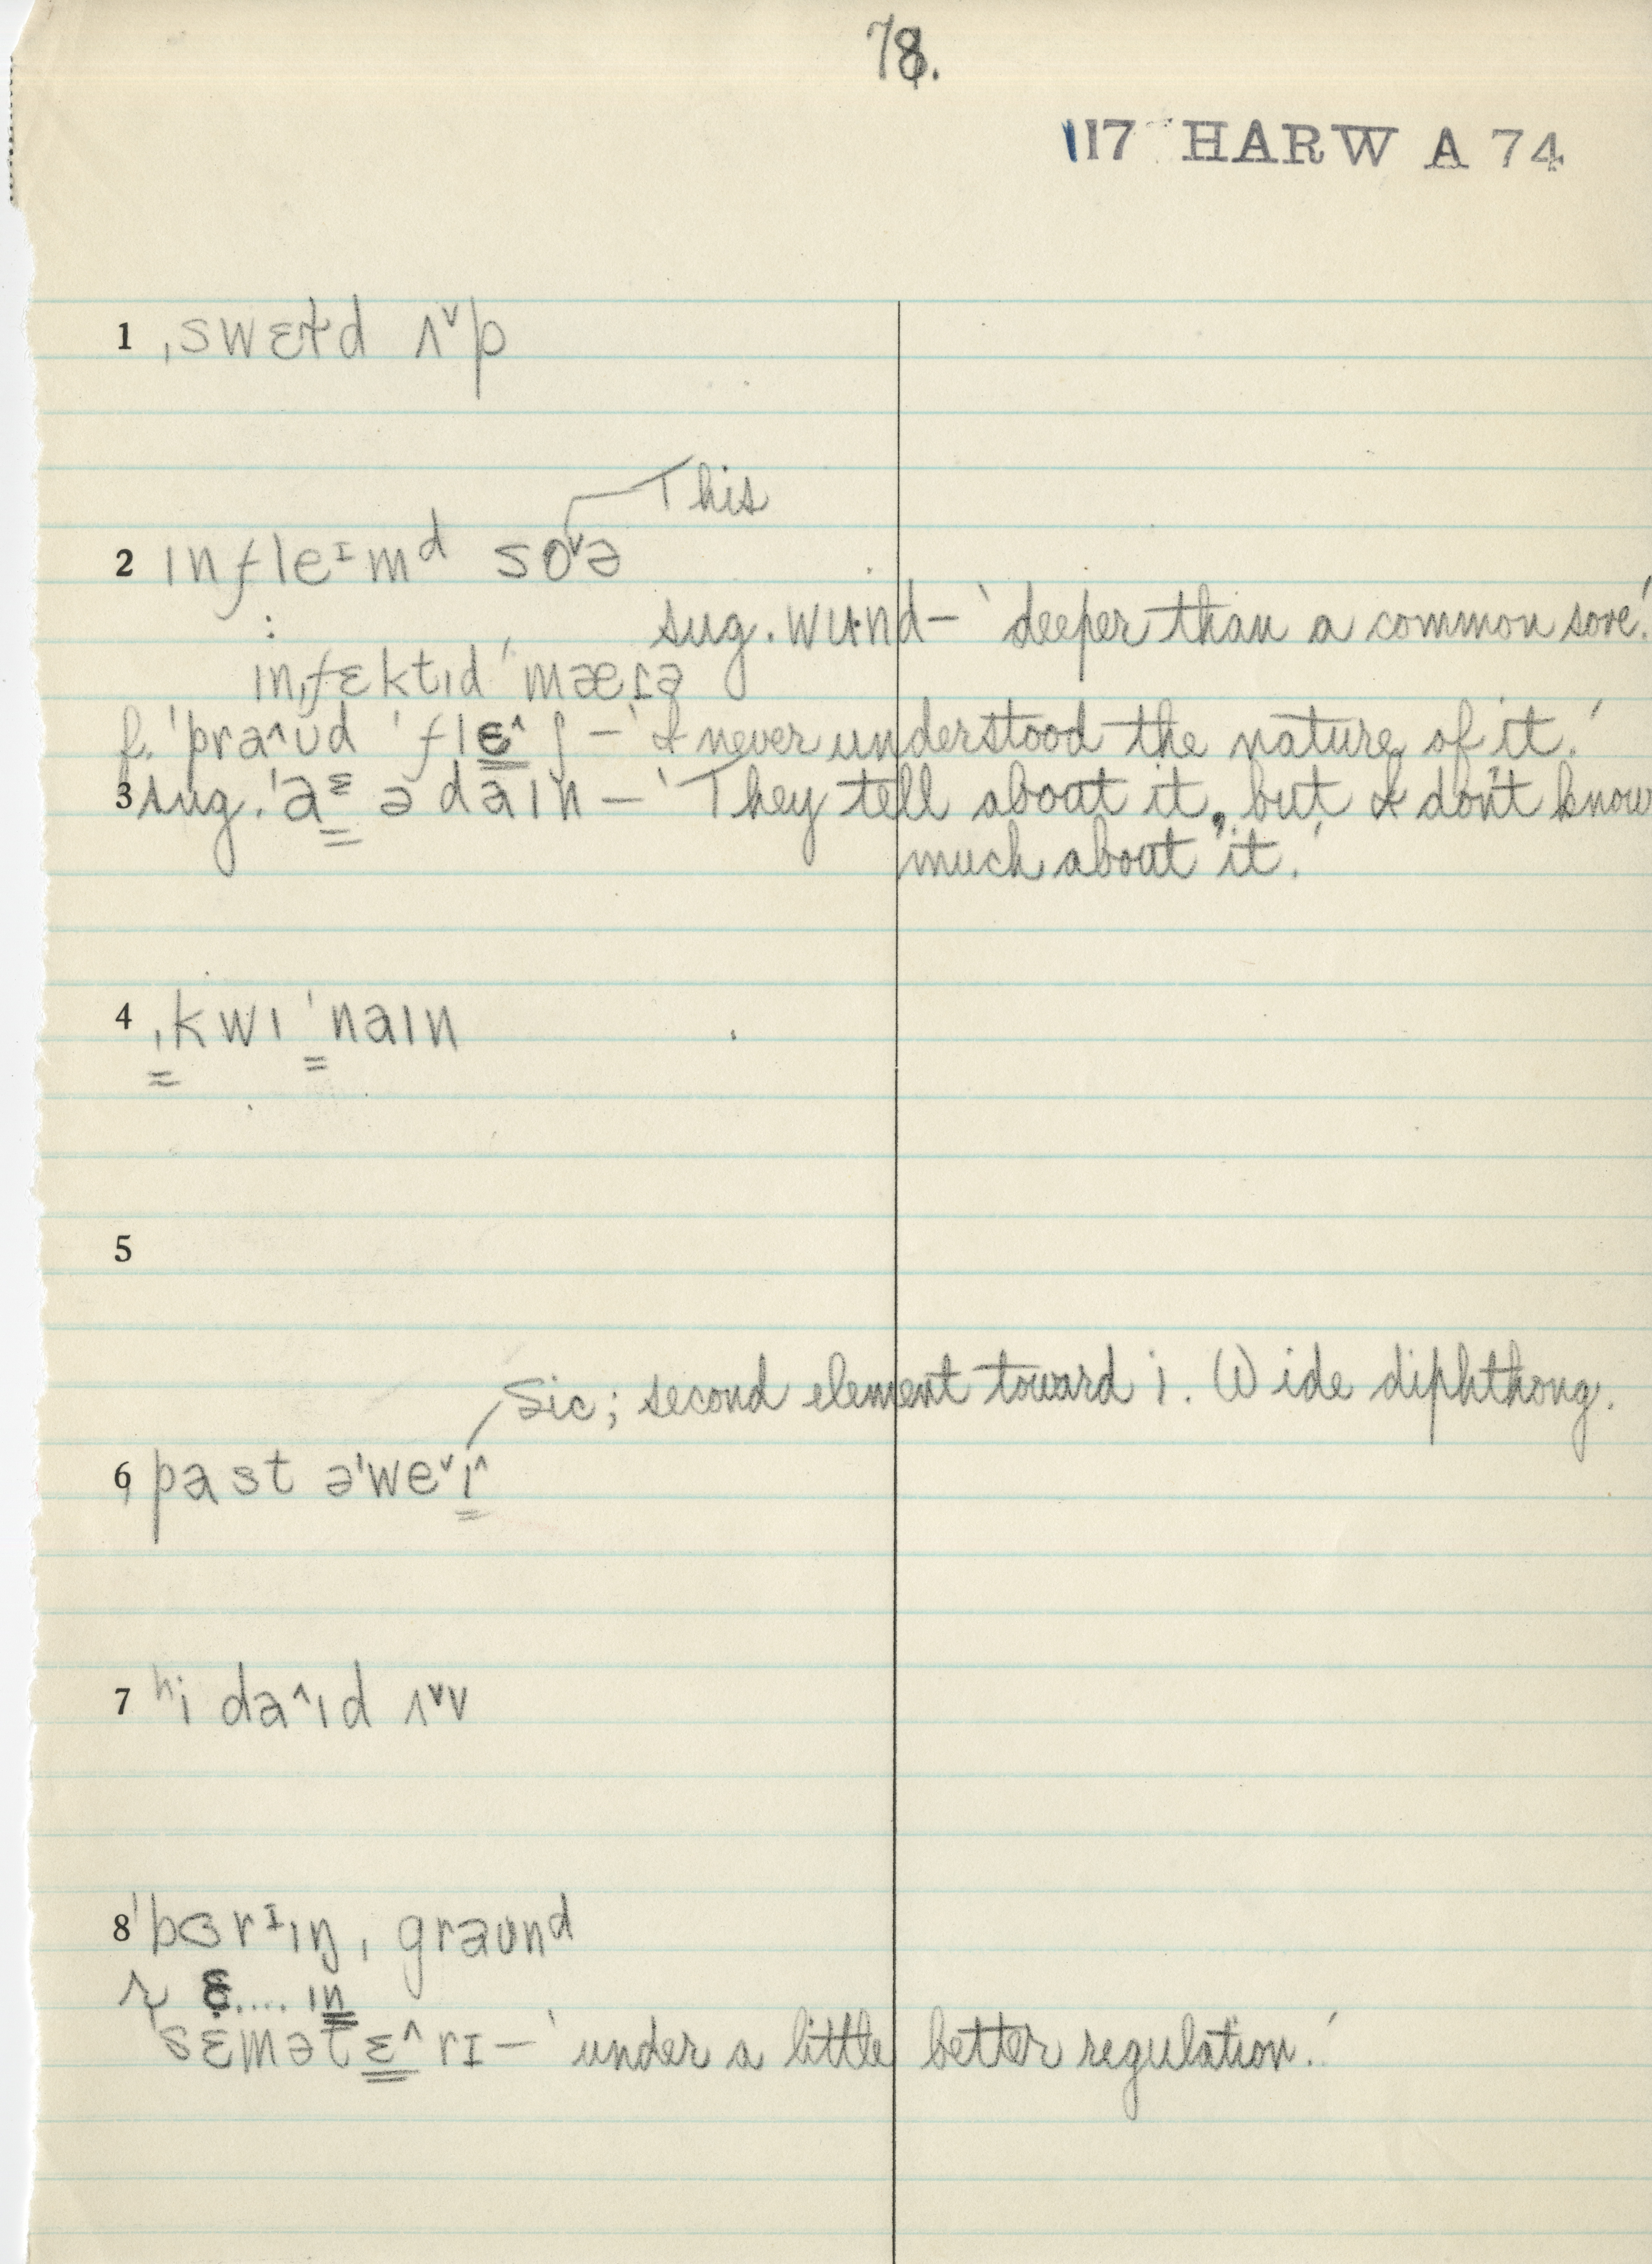 78.
117 HARW A 74
1 ˌswɛɫd ʌ˅p
This
2 ɪnfleᶦmᵈ so˅ə
sug. wʉnd – ‘deeper than a common sore.’
:
ɪnˌfɛktɪd ˈmæɾə
f. ˈpra^ʊd ˈflɛ^ʃ – ‘I never understood the nature of it.’
3 sug. ˈaᵋ ə daɪn – ‘They tell about it, but I don't know
much about it.’
4 ˌkwɪˈnaɪn
5
Sic; second element toward i. Wide diphthong.
6 past əˈwe˅ɪ^
7 ʰi da^ɪd ʌ˅v
8 ˈbɛrᶦɪŋˌgraʊnᵈ
r ɛ.... ɪn
sɛmətɛ^rɪ – ‘under a little better regulation.’